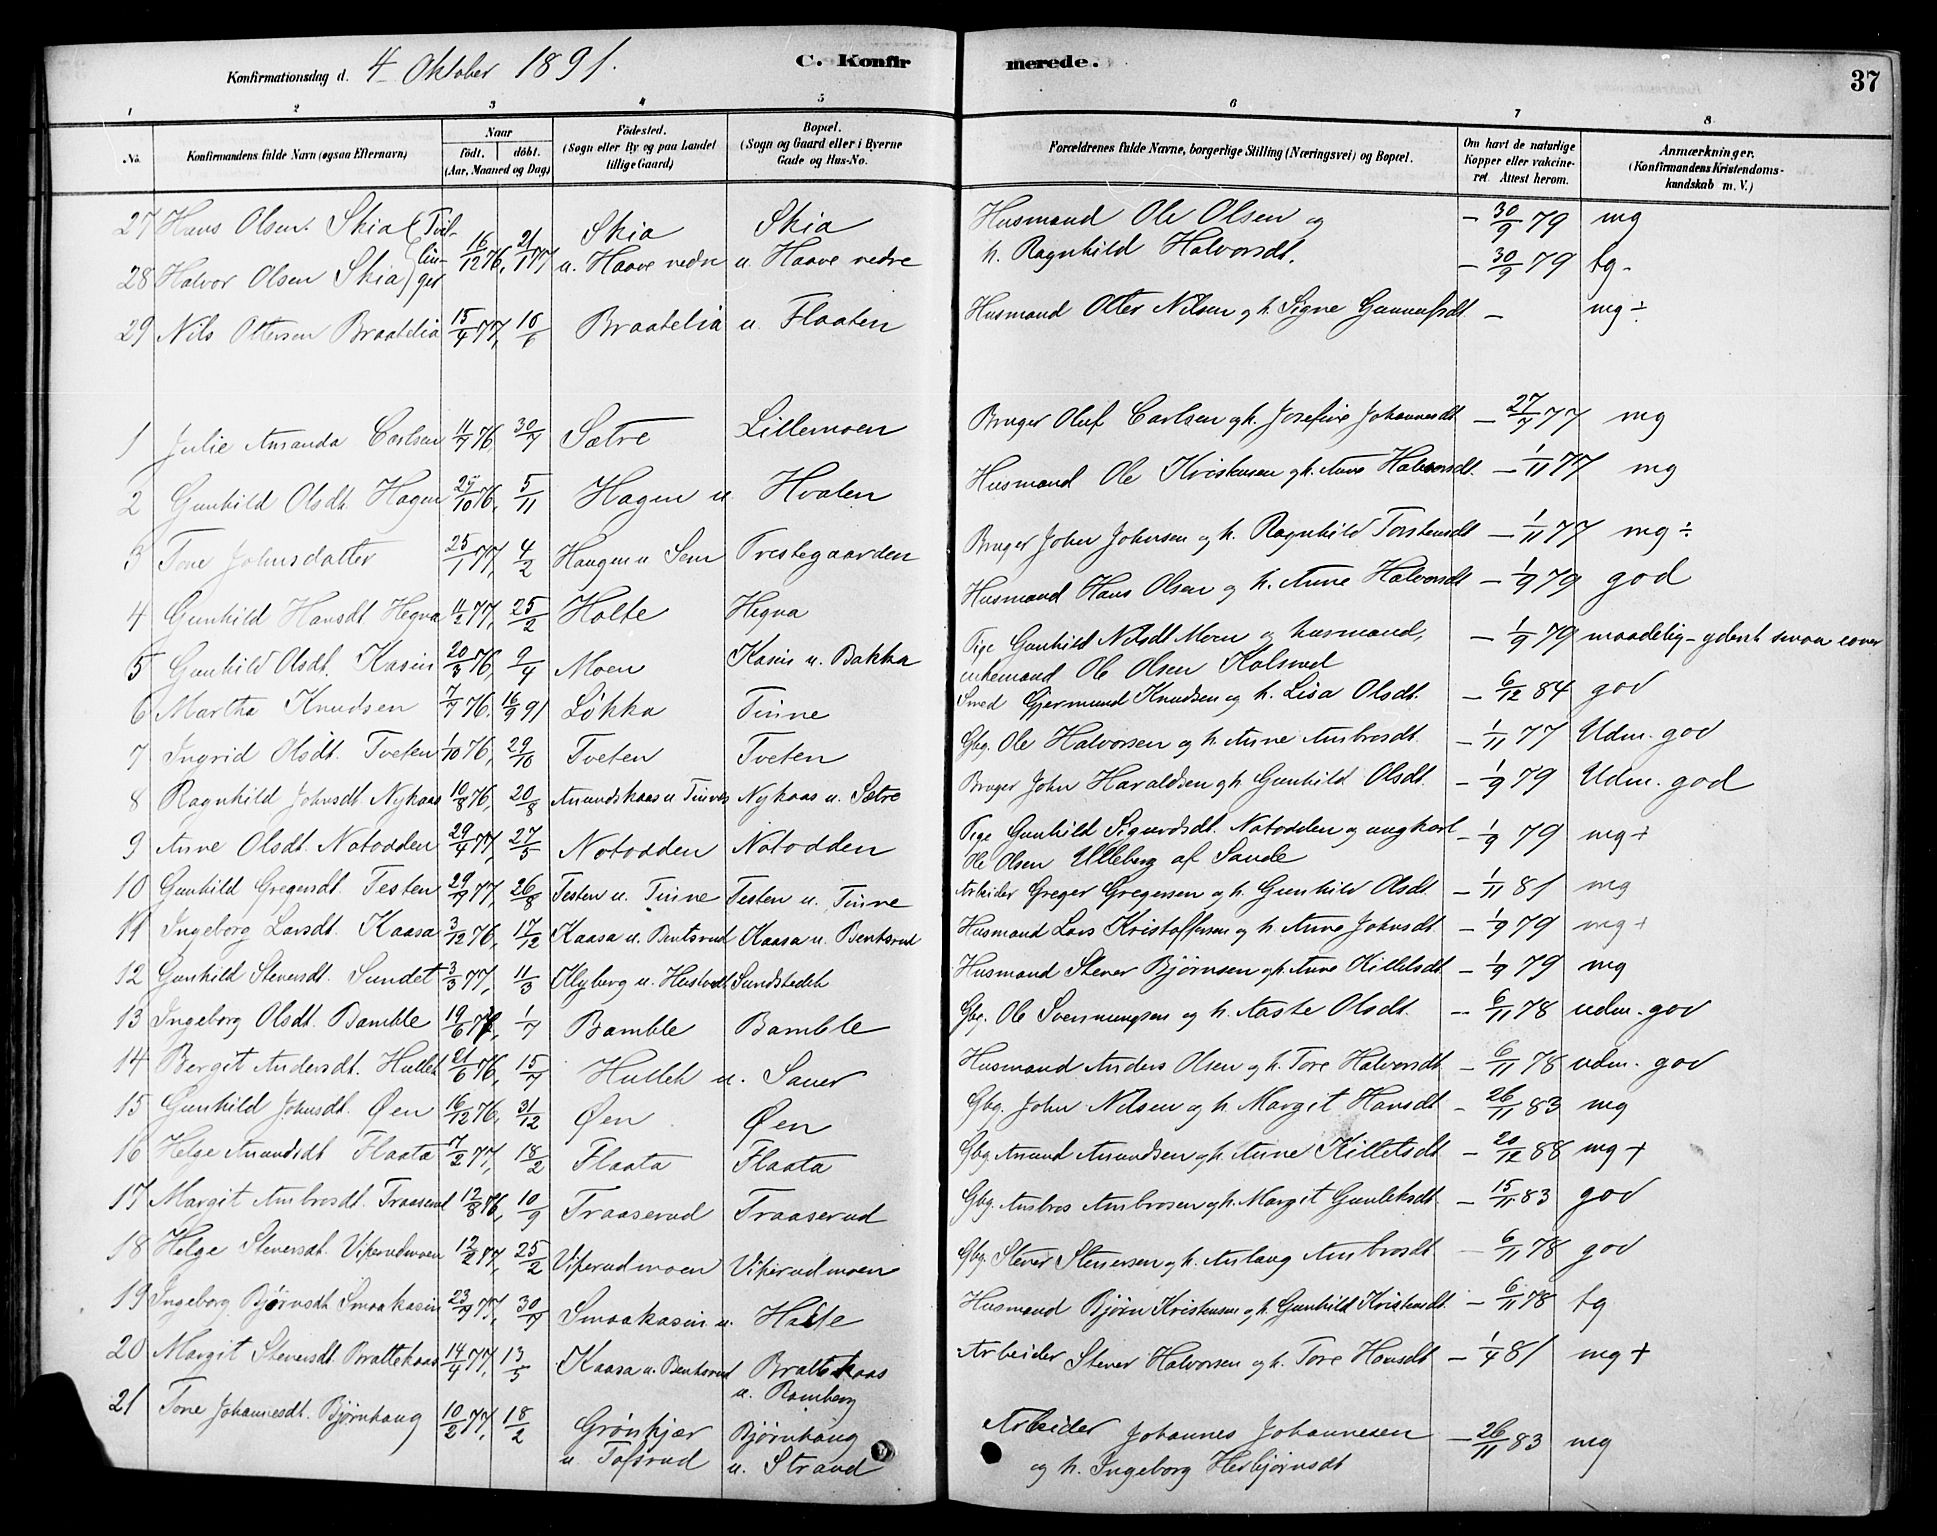 Konfirmationsdag d. 4 Oktober 1891.
C. Konfirmerede.
37
1 2 3 4 5 6 7 8
No. | Konfirmandens fulde Navn (ogsaa Efternavn) | Naar födt. döbt. (Aar, Maaned og Dag) | Födested. (Sogn eller By og paa Landet tillige Gaard) | Bopæl. (Sogn og Gaard eller i Byerne Gade og Hus-No. | Forældrenes fulde Navne, borgerlige Stilling (Næringsvei) og Bopæl. | Om havt de naturlige Kopper eller vakcineret. Attest herom. | Anmærkninger. (Konfirmandens Kristendomskundskab m. V.)
27 Hans Olsen Skia (Tvillinger 16/12 76, 21/1 77 Skia Skia Husmand Ole Olsen og — 30/9 79 mg
28 Halvor Olsen Skia u. Haave nedre u. Haave nedre h. Ragnhild Halvorsdt. — 30/9 79 tg-
29 Nils Ottersen Braatelia 15/4 77, 10/6 Braatelia u. Flaaten Husmand Otter Nilsen og h. Signe Gunnufsdt — mg÷
1 Julie Amanda Carlsen 11/7 76, 30/7 Sætre Lillemoen Bruger Oluf Carlsen og h. Josefine Johannesdt — 27/7 77 mg
2 Gunhild Olsdt. Hagen 24/10 76, 5/11 Hagen u. Hvalen Husmand Ole Kristensen og h. Anne Halvorsdt. — 1/11 77 mg
3 Tone Johnsdatter 25/1 77, 4/2 Haugen u Sem Trestegaarden Bruger John Johnsen og h. Ragnhild Torstensdt — 1/11 77 mg ÷
4 Gunhild Hansdt Hegna 11/2 77, 25/2 Holte Hegna Husmand Hans Olsen og h. Anne Halvorsdt — 1/9 79 god
5 Gunhild Olsdt. Kasin 20/3 76, 9/4 Moen Kasin u. Bakka Pige Gunhild Nilsdt Moen og husmand, — 1/9 79 maadelig - yderst svaa evner
enkemand Ole Olsen Kolsrud
6 Martha Knudsen 7/7 76, 16/9 91 Løkka Tinne Smed Gjermund Knudsen og h. Lisa Olsdt. — 6/12 84 god
7 Ingrid Olsdt. Tveten 1/10 76, 29/10 Tveten Tveten Gbg. Ole Halvorsen og h. Anne Ambrosdt. — 1/11 77 Udm. god
8 Ragnhild Johnsdt. Nykaas 10/8 76, 20/8 Amundskaas u Tinnes Nykaas u. Sætre Bruger John Haraldsen og h. Gunhild Olsdt. — 1/9 79 Udm. god
9 Anne Olsdt. Notodden 29/4 77, 27/5 Notodden Notodden Pige Gunhild Sigurdsdt. Notodden og ungkarl — 1/9 79 mg+
Ole Olsen Ulleberg af Sande
10 Gunhild Gregersdt. Testen 29/7 77, 26/8 Testen u. Tinne Testen u. Tinne Arbeider Greger Gregersen og h. Gunhild Olsdt. — 1/11 81 mg
11 Ingeborg Larsdt. Kaasa 3/12 76, 17/12 Kaasa u. Bentsrud Kaasa u. Bentsrud Husmand Lars Kristoffersen og h. Anne Johnsdt — 1/9 79 mg+
12 Gunhild Steversdt. Sundet 3/3 77, 11/3 Klyberg u. Hustvedt Sundstedet Husmand Stever Bjørnsen og h. Anne Killelsdt — 1/9 79 mg
13 Ingeborg Olsdt. Bamble 19/6 77, 1/7 Bamble Bamble Gbg. Ole Svennungsen og h. Aaste Olsdt. — 6/11 78 udm. god
14 Bergit Andersdt. Hullet 21/6 76, 15/7 Hullet u. Sauer Husmand Anders Olsen og h. Tore Halvorsdt — 6/11 78 udm. god
15 Gunhild Johnsdt. Øen 16/12 76, 31/12 Øen Øen Gbg. John Nilsen og h. Margit Hansdt — 26/11 83 mg
16 Helge Amundsdt Flaata 7/2 77, 18/2 Flaata Flaata Gbg. Amund Amundsen og h. Anne Killelsdt — 20/12 88 mg +
17 Margit Ambrosdt. Traaserud 12/8 76, 10/9 Traaserud Traaserud Gbg. Ambros Ambrosen og h. Margit Gunleksdt. — 15/11 83 god
18 Helge Steversdt. Viperudmoen 12/2 77, 25/2 Viperudmoen Viperudmoen Gbg. Stever Steversen og h. Anlaug Ambrosdt. — 6/11 78 god
19 Ingeborg Bjørnsdt Smaakasin 23/7 77, 30/7 Smaakasin u. Holte Husmand Bjørn Kristensen og h. Gunhild Kristensdt. — 6/11 78 tg
20 Margit Steversdt. Brattekaas 14/4 77, 13/5 Kaasa u. Bentsrud Brattekaas Arbeider Stever Halvorsen og h. Tore Hansdt — 1/4 81 mg +
u. Ramberg
21 Tone Johannesdt. Bjørnhaug 10/2 77, 18/2 Grønkjær Bjørnhaug Arbeider Johannes Johannesen — 26/11 83 mg
u Tofsrud u. Strand og h. Ingeborg Herbjørnsdt